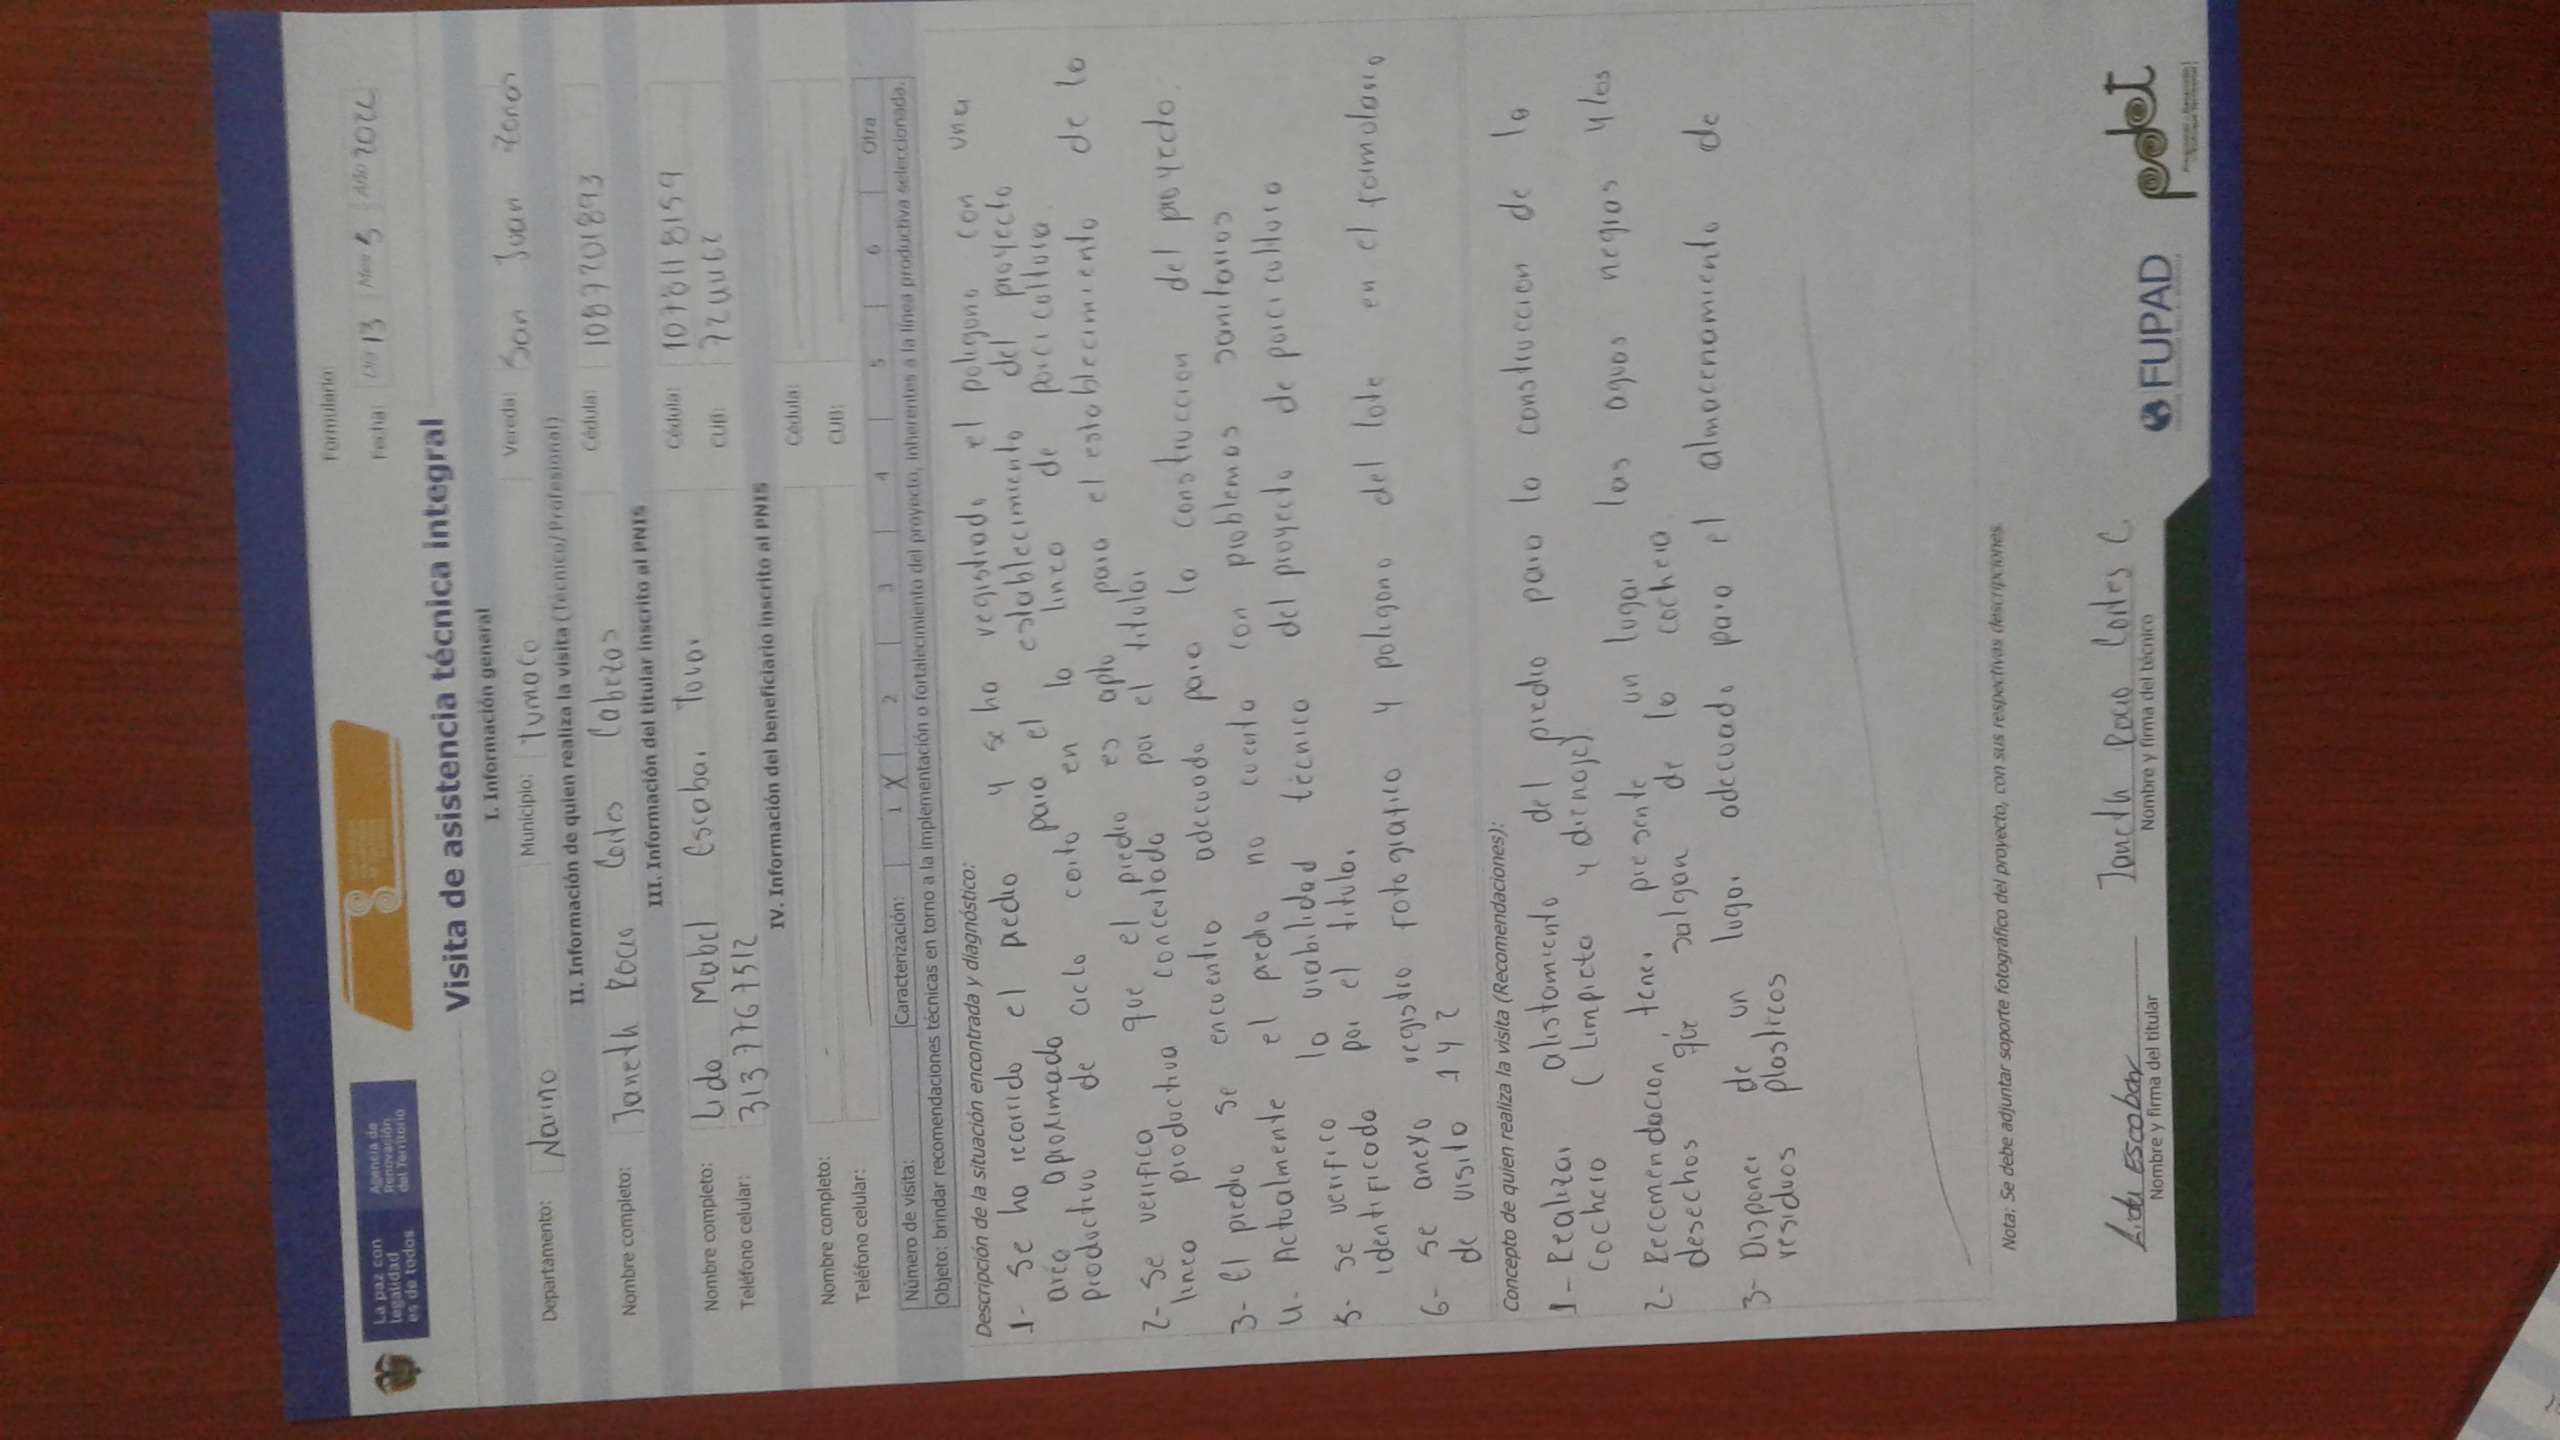 La paz con
legalidad
es de todos
Agencia de
Renovación
del Territorio
Formulario:
Fecha: Día 13 Mes 5 Año 2022
Visita de asistencia técnica integral
I. Información general
Departamento: Narino Municipio: Tumaco Vereda: San Juan
II. Información de quien realiza la visita (Técnico/Profesional)
Nombre completo: Janeth Rocio Cortes Cabezas Cédula: 1087201893
III. Información del titular inscrito al PNIS
Nombre completo: Lida Mabel Escobar Tovar Cédula: 1078118159
Teléfono celular: 3137767512 CUB:
IV. Información del beneficiario inscrito al PNIS
Nombre completo: Cédula:
Teléfono celular: CUB:
Número de visita: Caracterización: 1 X 2 3 4 5 6 Otra
Objeto: brindar recomendaciones técnicas en torno a la implementación o fortalecimiento del proyecto, inherentes a la línea productiva seleccionada.
Descripción de la situación encontrada y diagnóstico:
1- Se ha recorrido el predio y se ha registrado el poligono con una
area aproximada para el establecimiento del proyecto
productivo de ciclo corto en la linea de porcicultura.
2- Se verifica que el predio es apto para el establecimiento de la
linea productiva concertada por el titular
3- El predio se encuentra adecuado para la construccion del proyecto.
4- Actualmente el predio no cuenta con problemas sanitarios
5- se verifico la viabilidad técnica del proyecto de porcicultura
identificada por el titular
6- se anexa registro fotografico y poligono del lote en el formulario
de visita 1 y 2
Concepto de quien realiza la visita (Recomendaciones):
1- Realizar alistamiento del predio para la construccion de la
Cochera (Limpieta y drenaje)
2- Recomendacion, tener presente un lugar las aguas negras y los
desechos que salgan de la cochera.
3- Disponer de un lugar adecuado para el almacenamiento de
residuos plasticos
Nota: Se debe adjuntar soporte fotográfico del proyecto, con sus respectivas descripciones.
Lida Escobar
Nombre y firma del titular
Janeth Rocio Cortes C
Nombre y firma del técnico
FUPAD
pdet